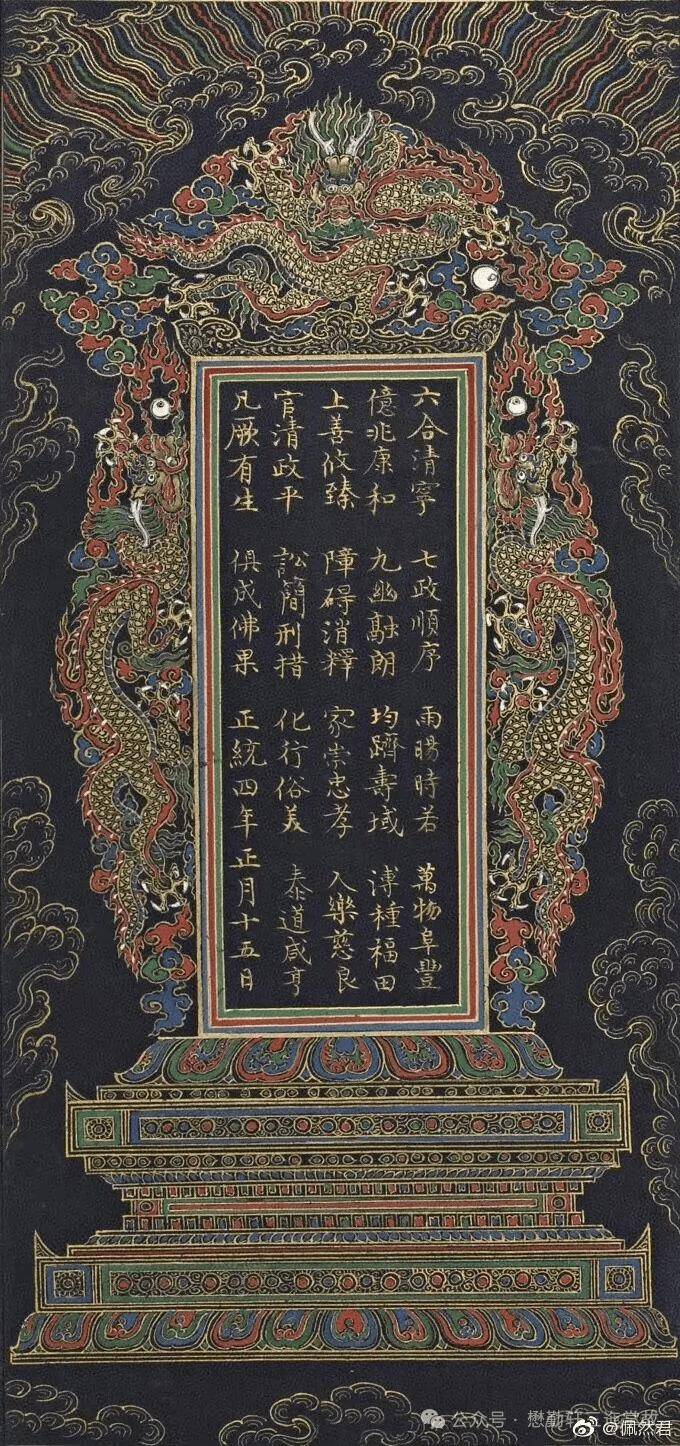 六合清寧 七政順序 雨暘時若 萬物阜豐
億兆康和 九幽融朗 均躋壽域 溥種福田
上善攸臻 障碍消釋 家崇忠孝 人樂慈良
官清政平 訟簡刑措 化行俗美 泰道咸亨
凡厥有生 俱成佛果 正統四年正月十五日
公众号 · 懋勤轩
@佩然君